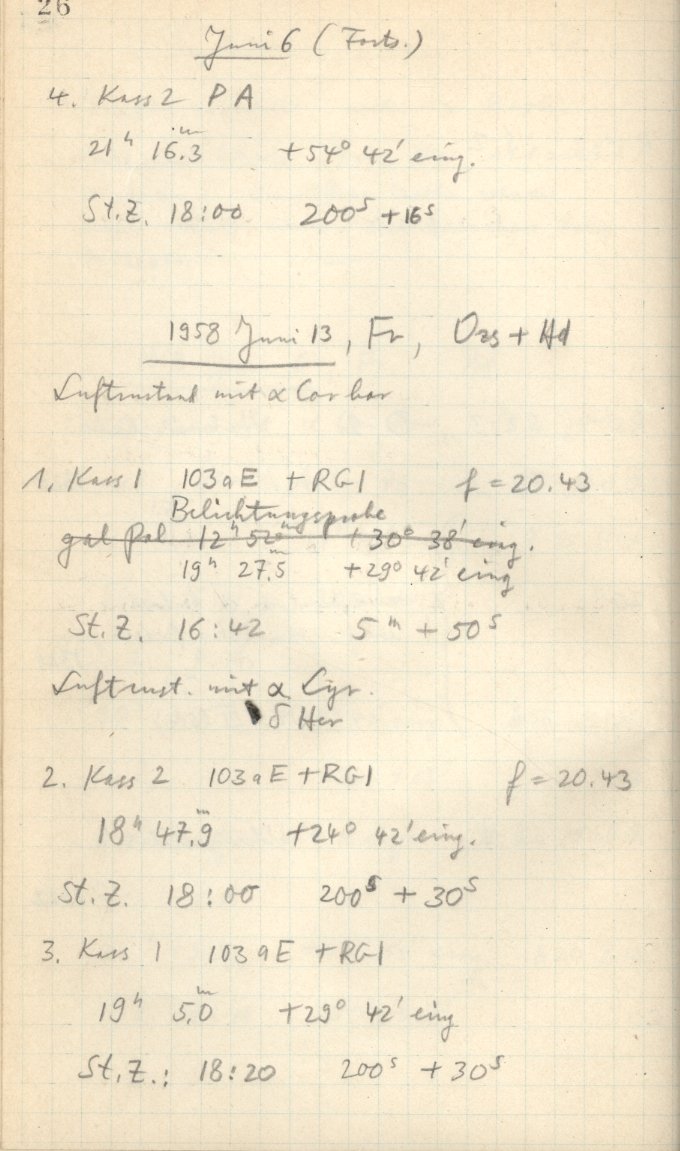 26
Juni 6 (Forts.)
4. Kass 2 PA
21ʰ 16.3ᵐ +54° 42' eing.
St.Z. 18:00 200ˢ +16ˢ
1958 Juni 13, Fr, Ozs + Hd
Luftzustand mit α Cor bor
1. Kass 1 103aE + RG1 f = 20.43
Belichtungsprobe
gal Pol 12ʰ 52ᵐ +30° 38' eing.
19ʰ 27.5ᵐ +29° 42' eing
St.Z. 16:42 5ᵐ + 50ˢ
Luftzust. mit α Lyr.
δ Her
2. Kass 2 103aE + RG1 f = 20.43
18ʰ 47.9ᵐ +24° 42' eing.
St.Z. 18:00 200ˢ + 30ˢ
3. Kass 1 103aE + RG1
19ʰ 5.0ᵐ +29° 42' eing
St.Z.: 18:20 200ˢ + 30ˢ